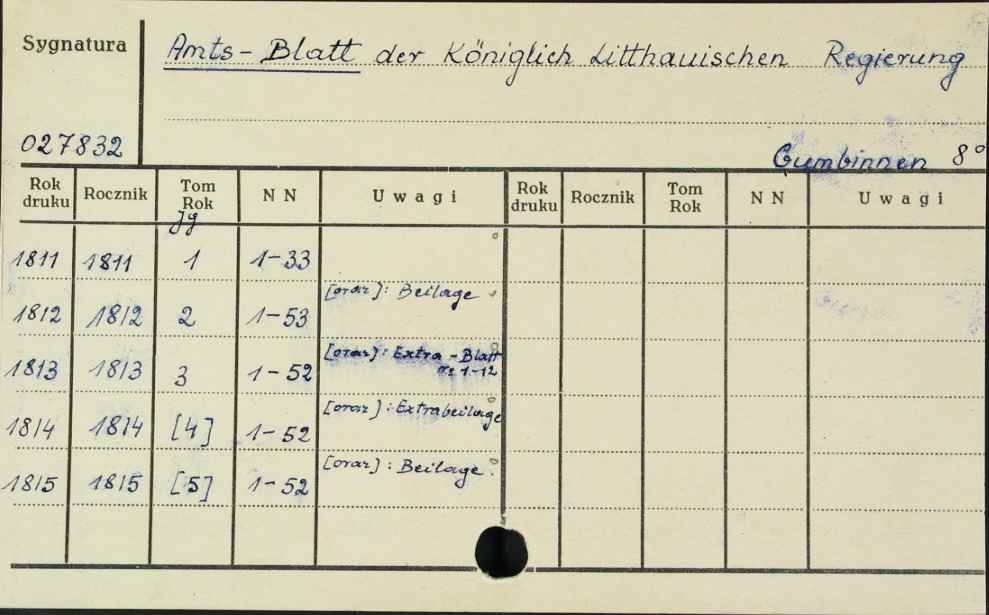 Sygnatura
Amts-Blatt der Königlich Litthauischen Regierung
027832
Gumbinnen 8°
Rok druku Rocznik Tom Rok N N Uwagi Rok druku Rocznik Tom Rok N N Uwagi
Jg
1811 1811 1 1-33
1812 1812 2 1-53 [oraz]: Beilage
1813 1813 3 1-52 [oraz]: Extra-Blatt nr 1-12
1814 1814 [4] 1-52 [oraz]: Extrabeilage
1815 1815 [5] 1-52 [oraz]: Beilage